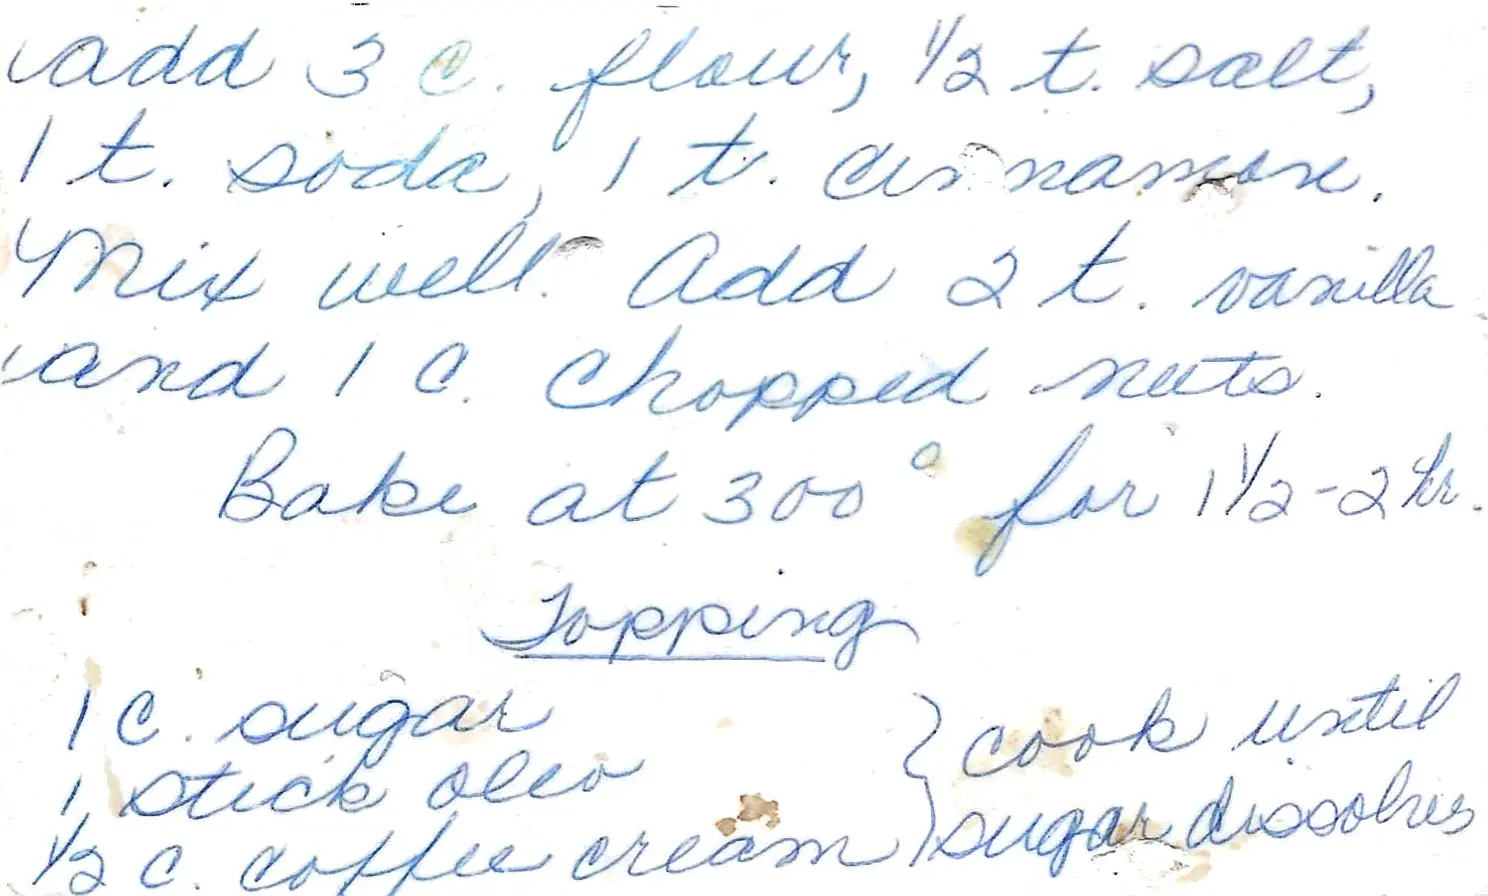 add 3 c. flour, 1/2 t. salt,
1 t. soda, 1 t. cinnamon.
Mix well. Add 2 t. vanilla
and 1 c. chopped nuts.
Bake at 300° for 1 1/2 - 2 hr.
Topping
1 c. sugar
1 stick oleo
1/2 c. coffee cream
} cook until
sugar dissolves